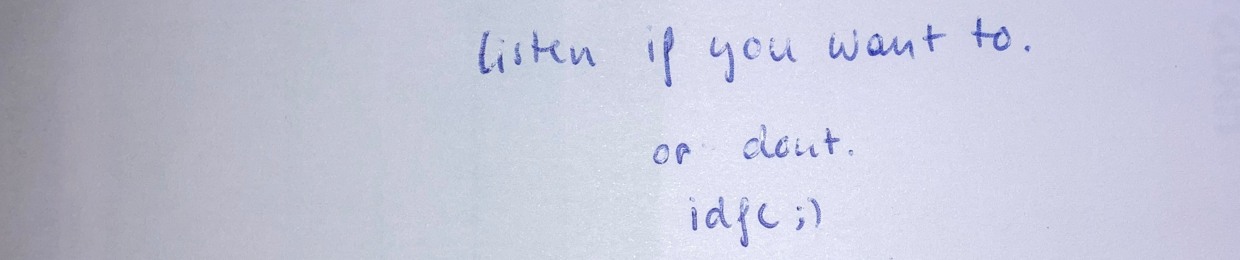 listen if you want to.
or dont.
idfc ;)